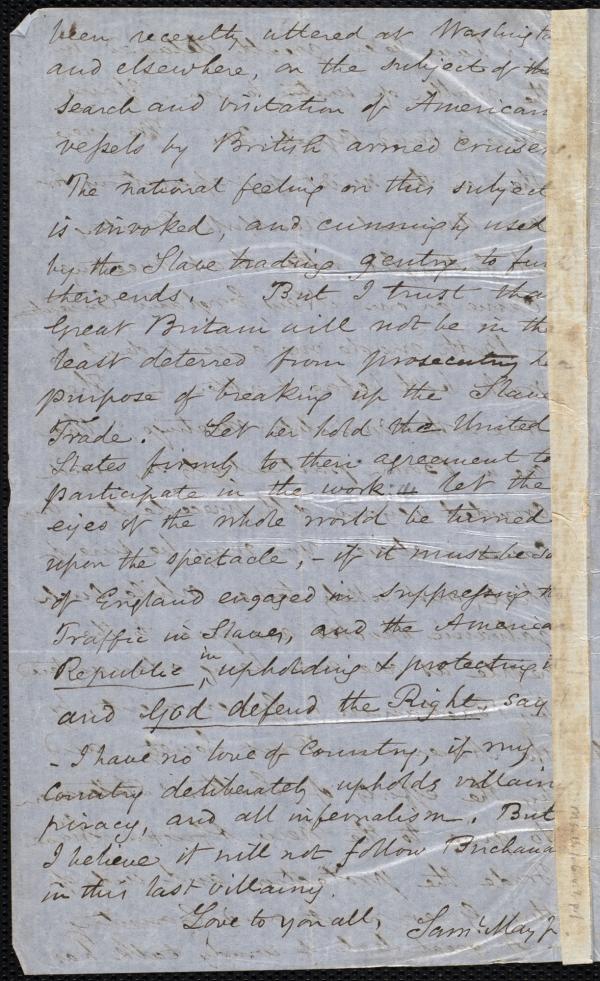 been recently uttered at Washingt
and elsewhere, on the subject of the
search and visitation of American
vessels by British armed cruisers
The national feeling on this subject
is invoked, and cunningly used
by the Slave trading gentry, to fur
their ends. But I trust tha
Great Britain will not be in th
least deterred from prosecuting h
purpose of breaking up the Slave
Trade. Let her hold the United
States firmly to their agreement to
participate in the work. Let the
eyes of the whole world be turned
upon the spectacle, - if it must be so
of England engaged in suppressing th
Traffic in Slaves, and the America
Republic in upholding & protecting it
and God defend the Right, say
- I have no love of Country, if my
Country deliberately upholds villain
piracy, and all infernalism. But
I believe it will not follow Buchana
in this last villainy.
Love to you all, Saml. May Jr